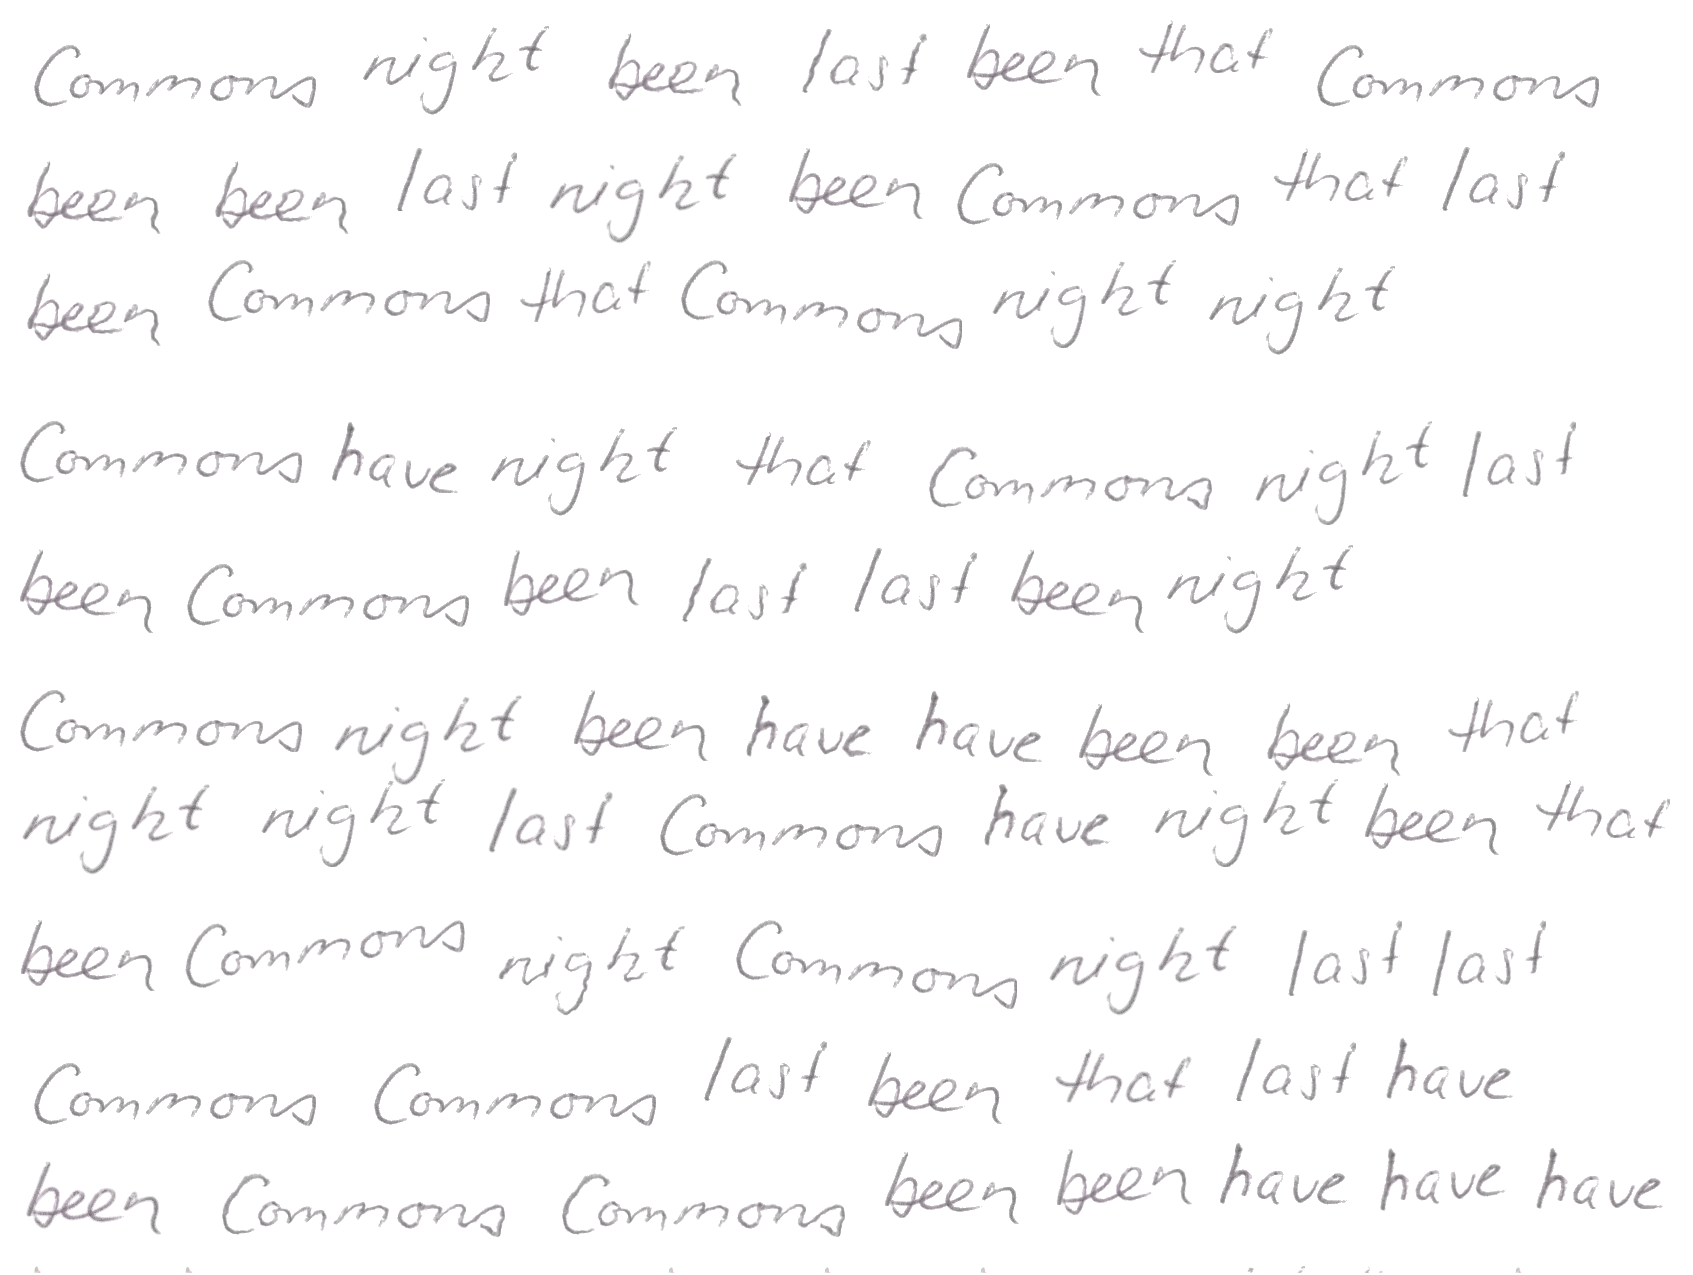 Commons night been last been that Commons
been been last night been Commons that last
been Commons that Commons night night
Commons have night that Commons night last
been Commons been last last been night
Commons night been have have been been that
night night last Commons have night been that
been Commons night Commons night last last
Commons Commons last been that last have
been Commons Commons been been have have have